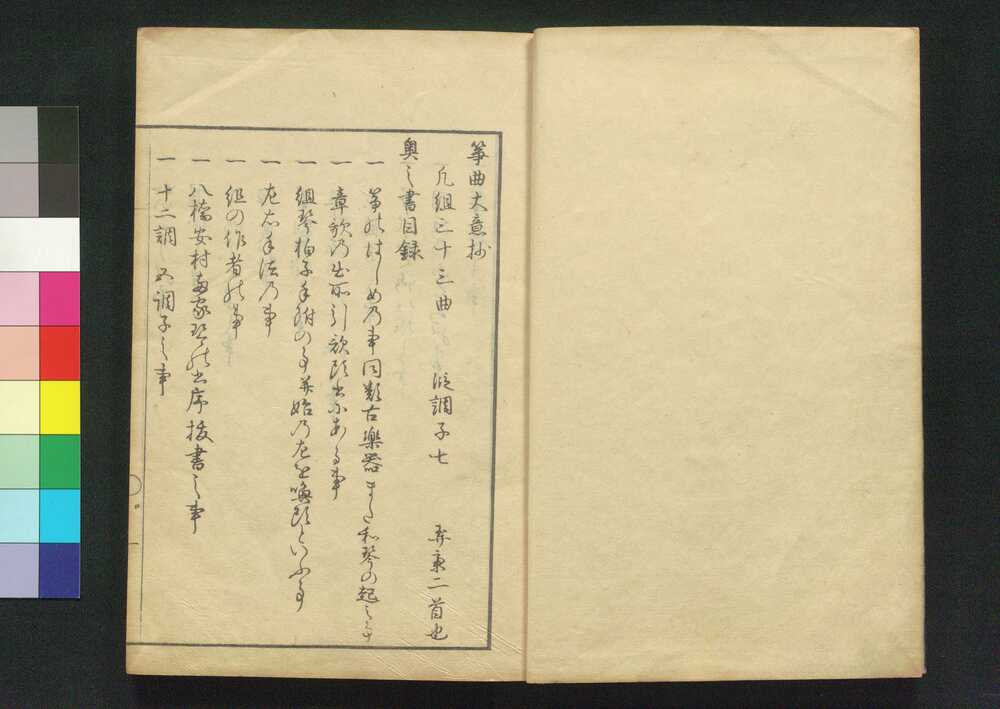 箏曲大意抄
凡組三十三曲 調子七 二首也
奥之書目録
一 箏のはしめの事同類古楽器また和琴の起之事
一 章歌乃出所引歌頭書にある事
一 組琴拍子手附の事并始乃左を喚頭といふ事
一 左右手法乃事
一 組の作者の事
一 八橋安村両家琴の出序抜書之事
一 十二調之五調子之事